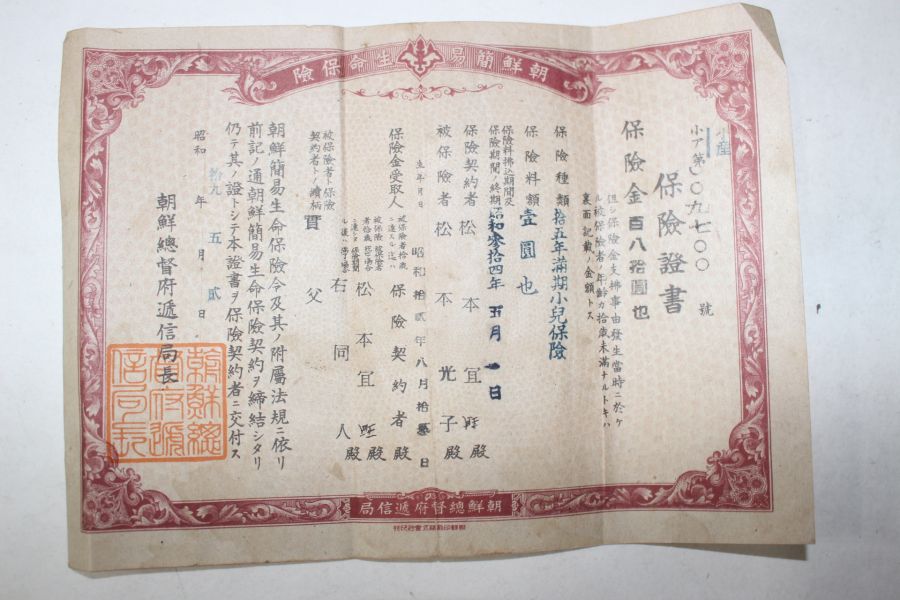 朝鮮簡易生命保險
保險證書
保險金百八拾圓也
但シ保險金支拂事由發生當時ニ於ケ
ル被保險者ノ年齡カ拾歲未滿ナルトキハ
裏面記載ノ金額トス
保險種類 拾五年滿期小兒保險
保險料額 壹圓也
保險料拂込期間及
保險期間ノ終期 昭和參拾四年五月一日
保險契約者 松本宜 殿
被保險者 松本光子 殿
生年月日 昭和拾貳年八月拾 日
保險金受取人
保險契約者 殿
松本宜 殿
右同人 殿
被保險者ト保險
契約者トノ續柄 實父
朝鮮簡易生命保險令及其ノ附屬法規ニ依リ
前記ノ通朝鮮簡易生命保險契約ヲ締結シタリ
仍テ其ノ證トシテ本證書ヲ保險契約者ニ交付ス
昭和拾九年五月貳日
朝鮮總督府遞信局長
朝鮮總督府遞信局